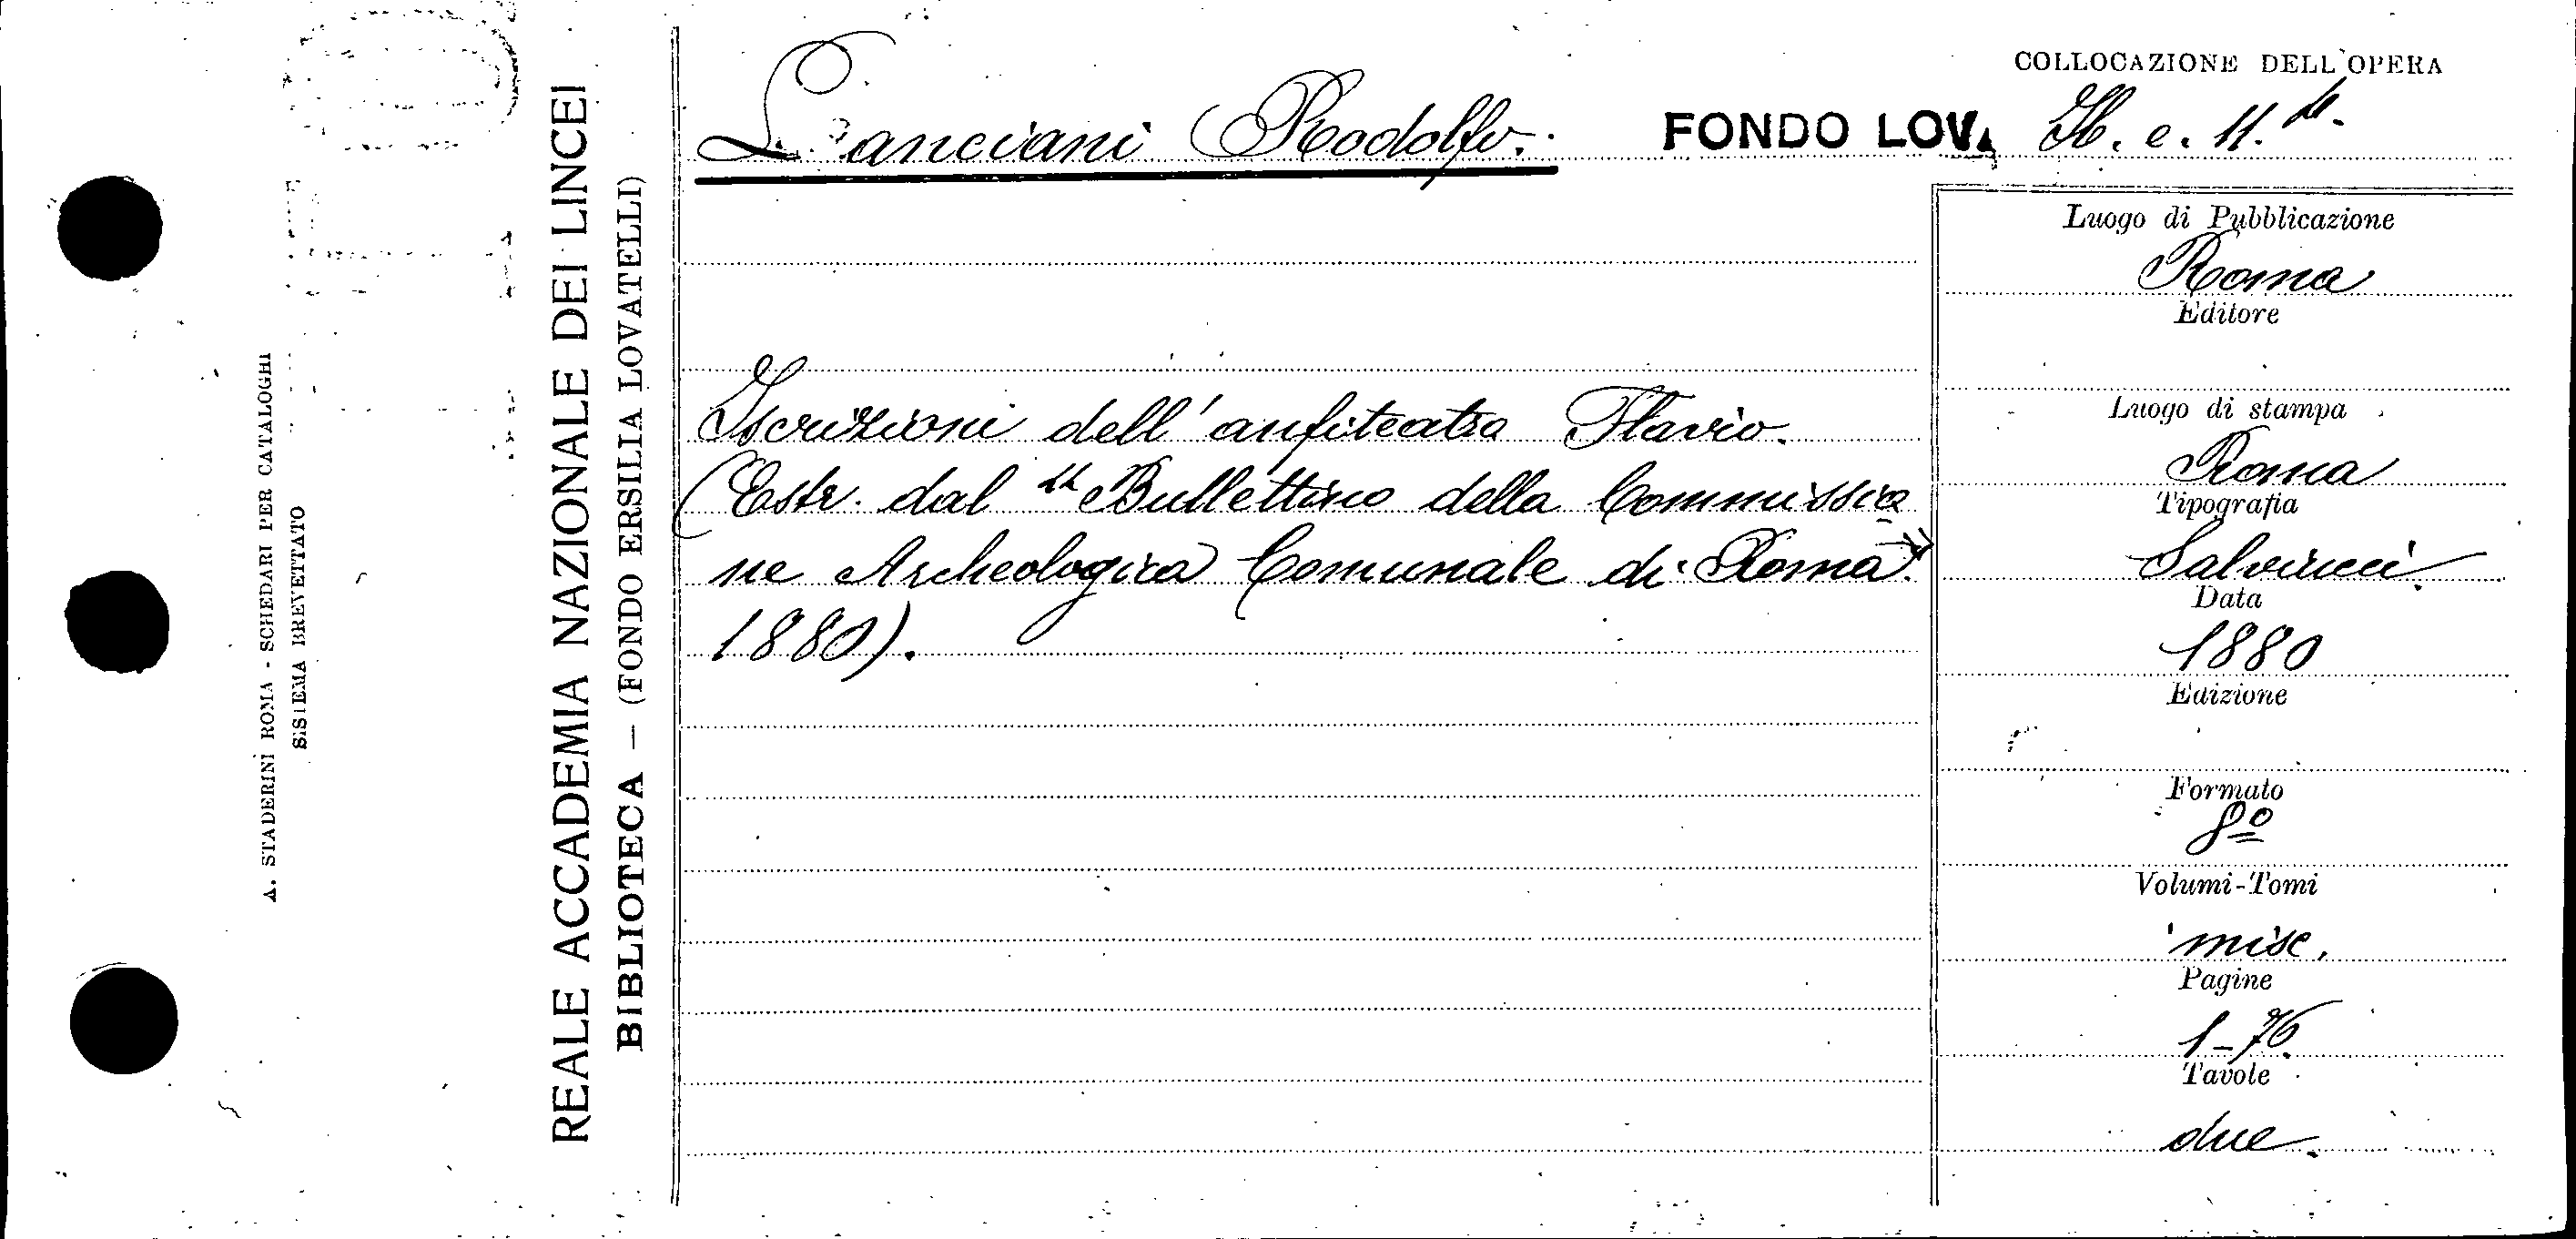 COLLOCAZIONE DELL'OPERA
Lanciani Rodolfo.
FONDO LOV. e. 11.
Iscrizioni dell'anfiteatro Flavio.
(Estr. dal "Bullettino della Commissio
ne Archeologica Comunale di Roma"
1880).
Luogo di Pubblicazione
Roma
Editore
Luogo di stampa
Roma
Tipografia
Salviucci.
Data
1880
Edizione
Formato
8º
Volumi-Tomi
misc.
Pagine
1-76.
Tavole
due.
REALE ACCADEMIA NAZIONALE DEI LINCEI
BIBLIOTECA — (FONDO ERSILIA LOVATELLI)
A. STADERINI ROMA - SCHEDARI PER CATALOGHI
SISTEMA BREVETTATO